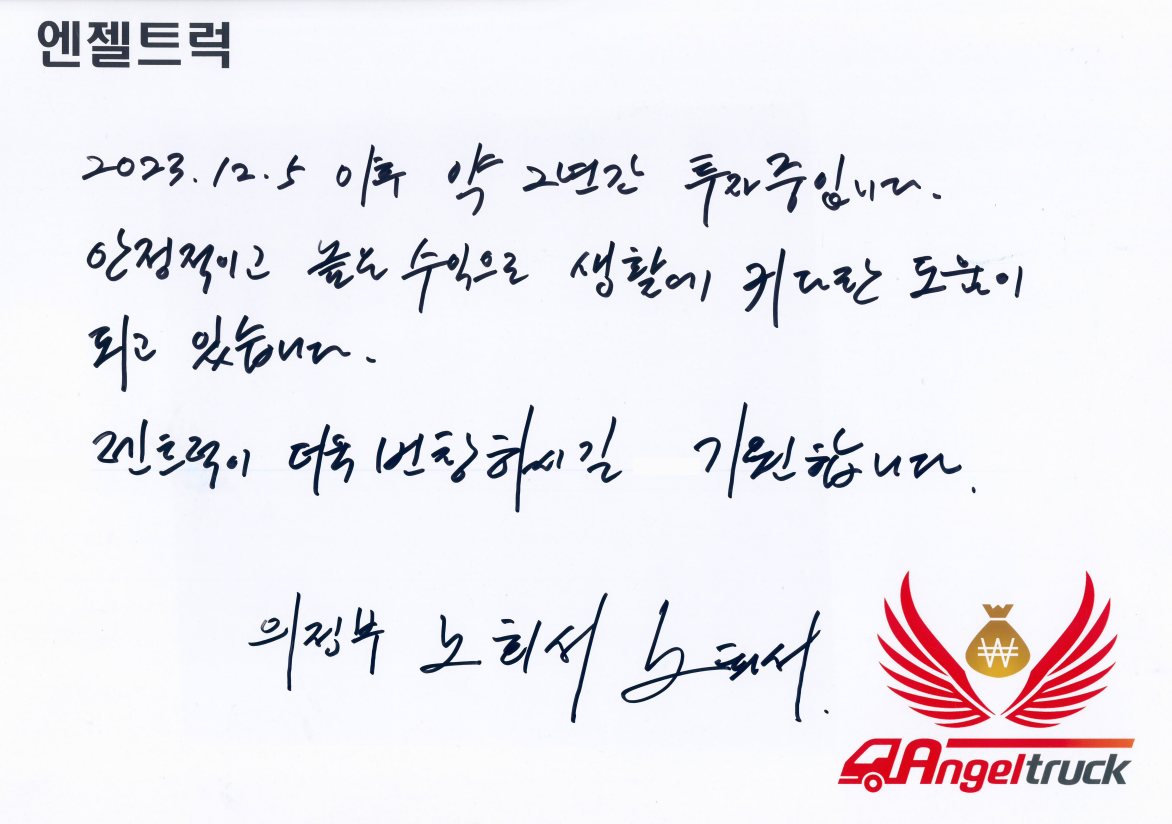 엔젤트럭
2023.12.5 이후 약 2년간 투자중입니다.
안정적이고 높은 수익으로 생활에 커다란 도움이
되고 있습니다.
렌트럭이 더욱 번창하시길 기원합니다.
의정부 노희서
Angeltruck